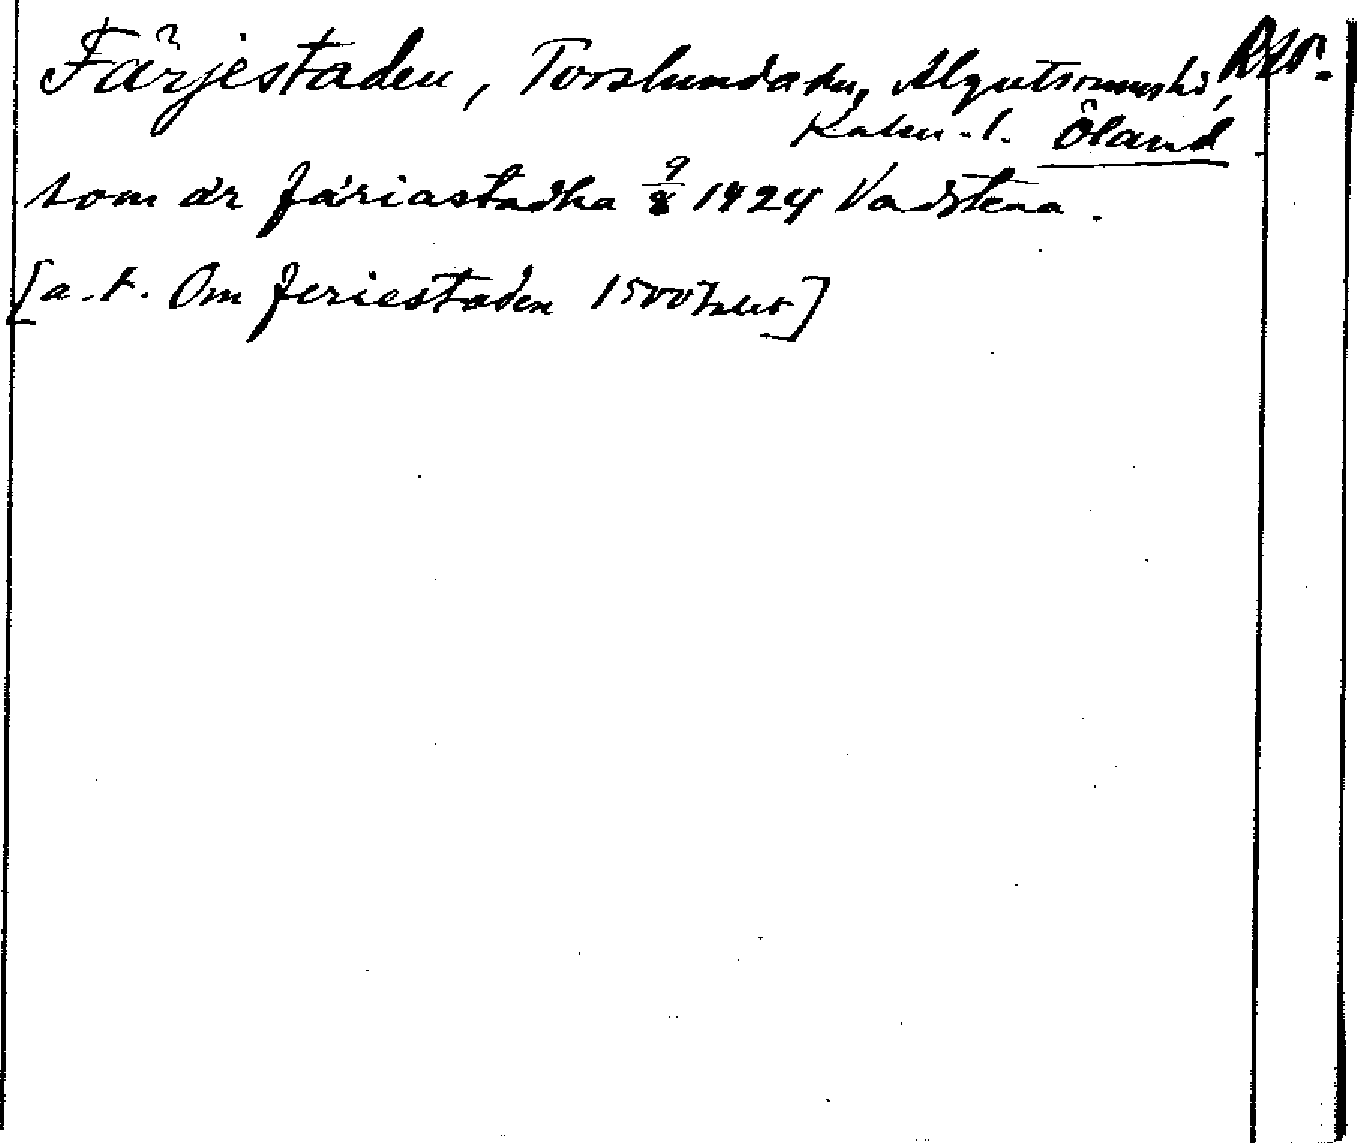 Färjestaden, Torslunda sn, Algutsrums hd, RAp.
Kalm. l. Öland
som är färiastadha 9/8 1424 Vadstena.
[a.t. Om feriestaden 1500talet]